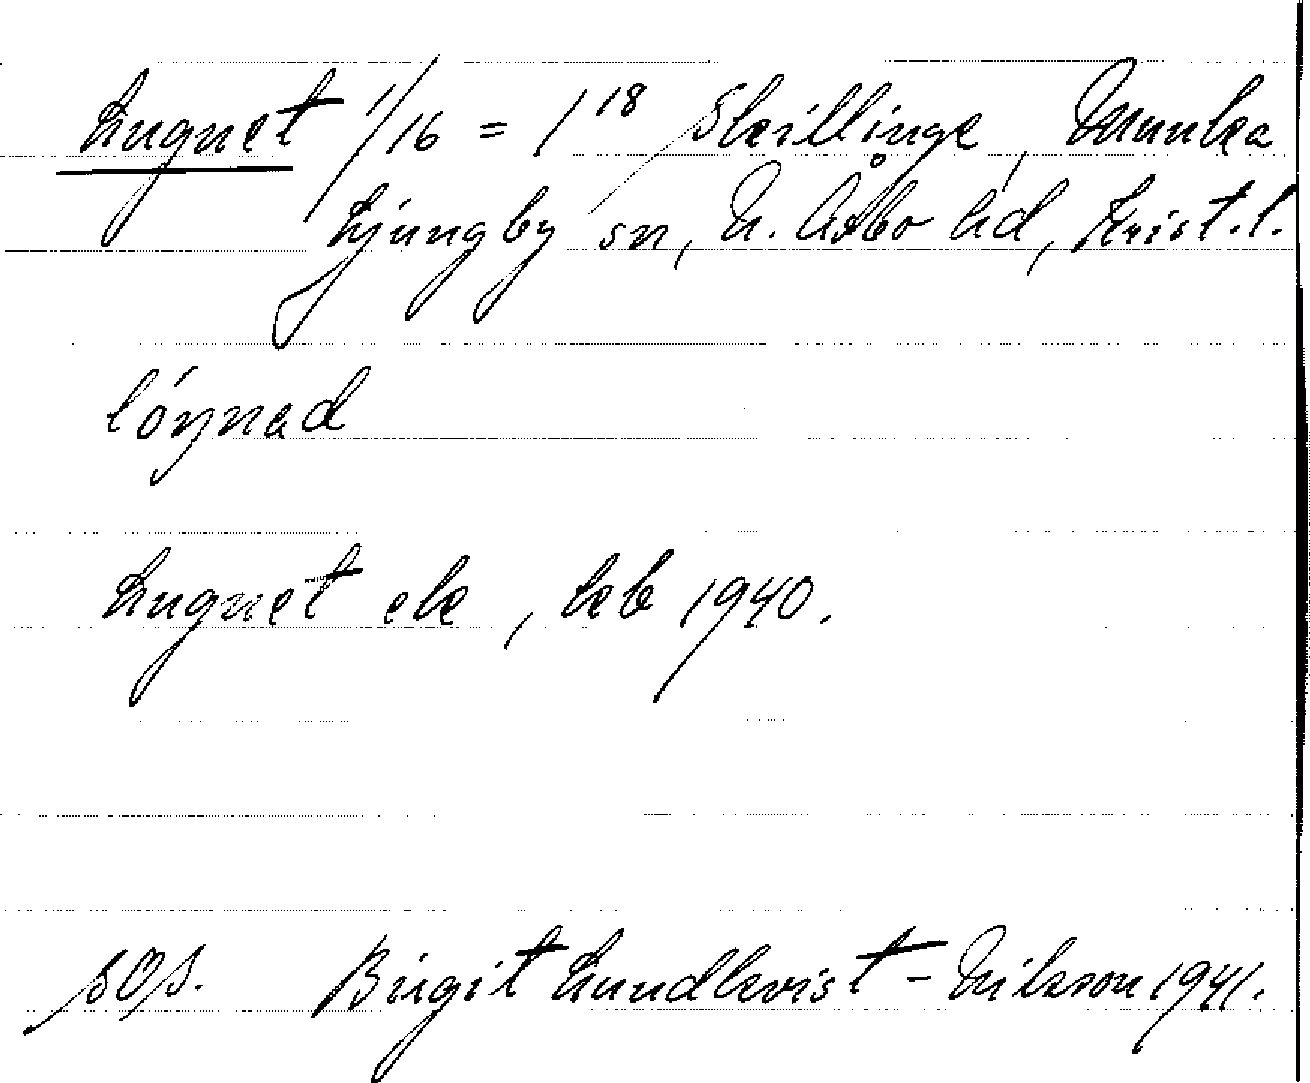 Lugnet 1/16 = 1¹⁸ Skillinge, Munka
Ljungby sn, N. Åsbo hd, Krist. l.
lóŋnad
Lugnet ek, kb 1940.
SOS. Birgit Lundkvist-Nilsson 1941.